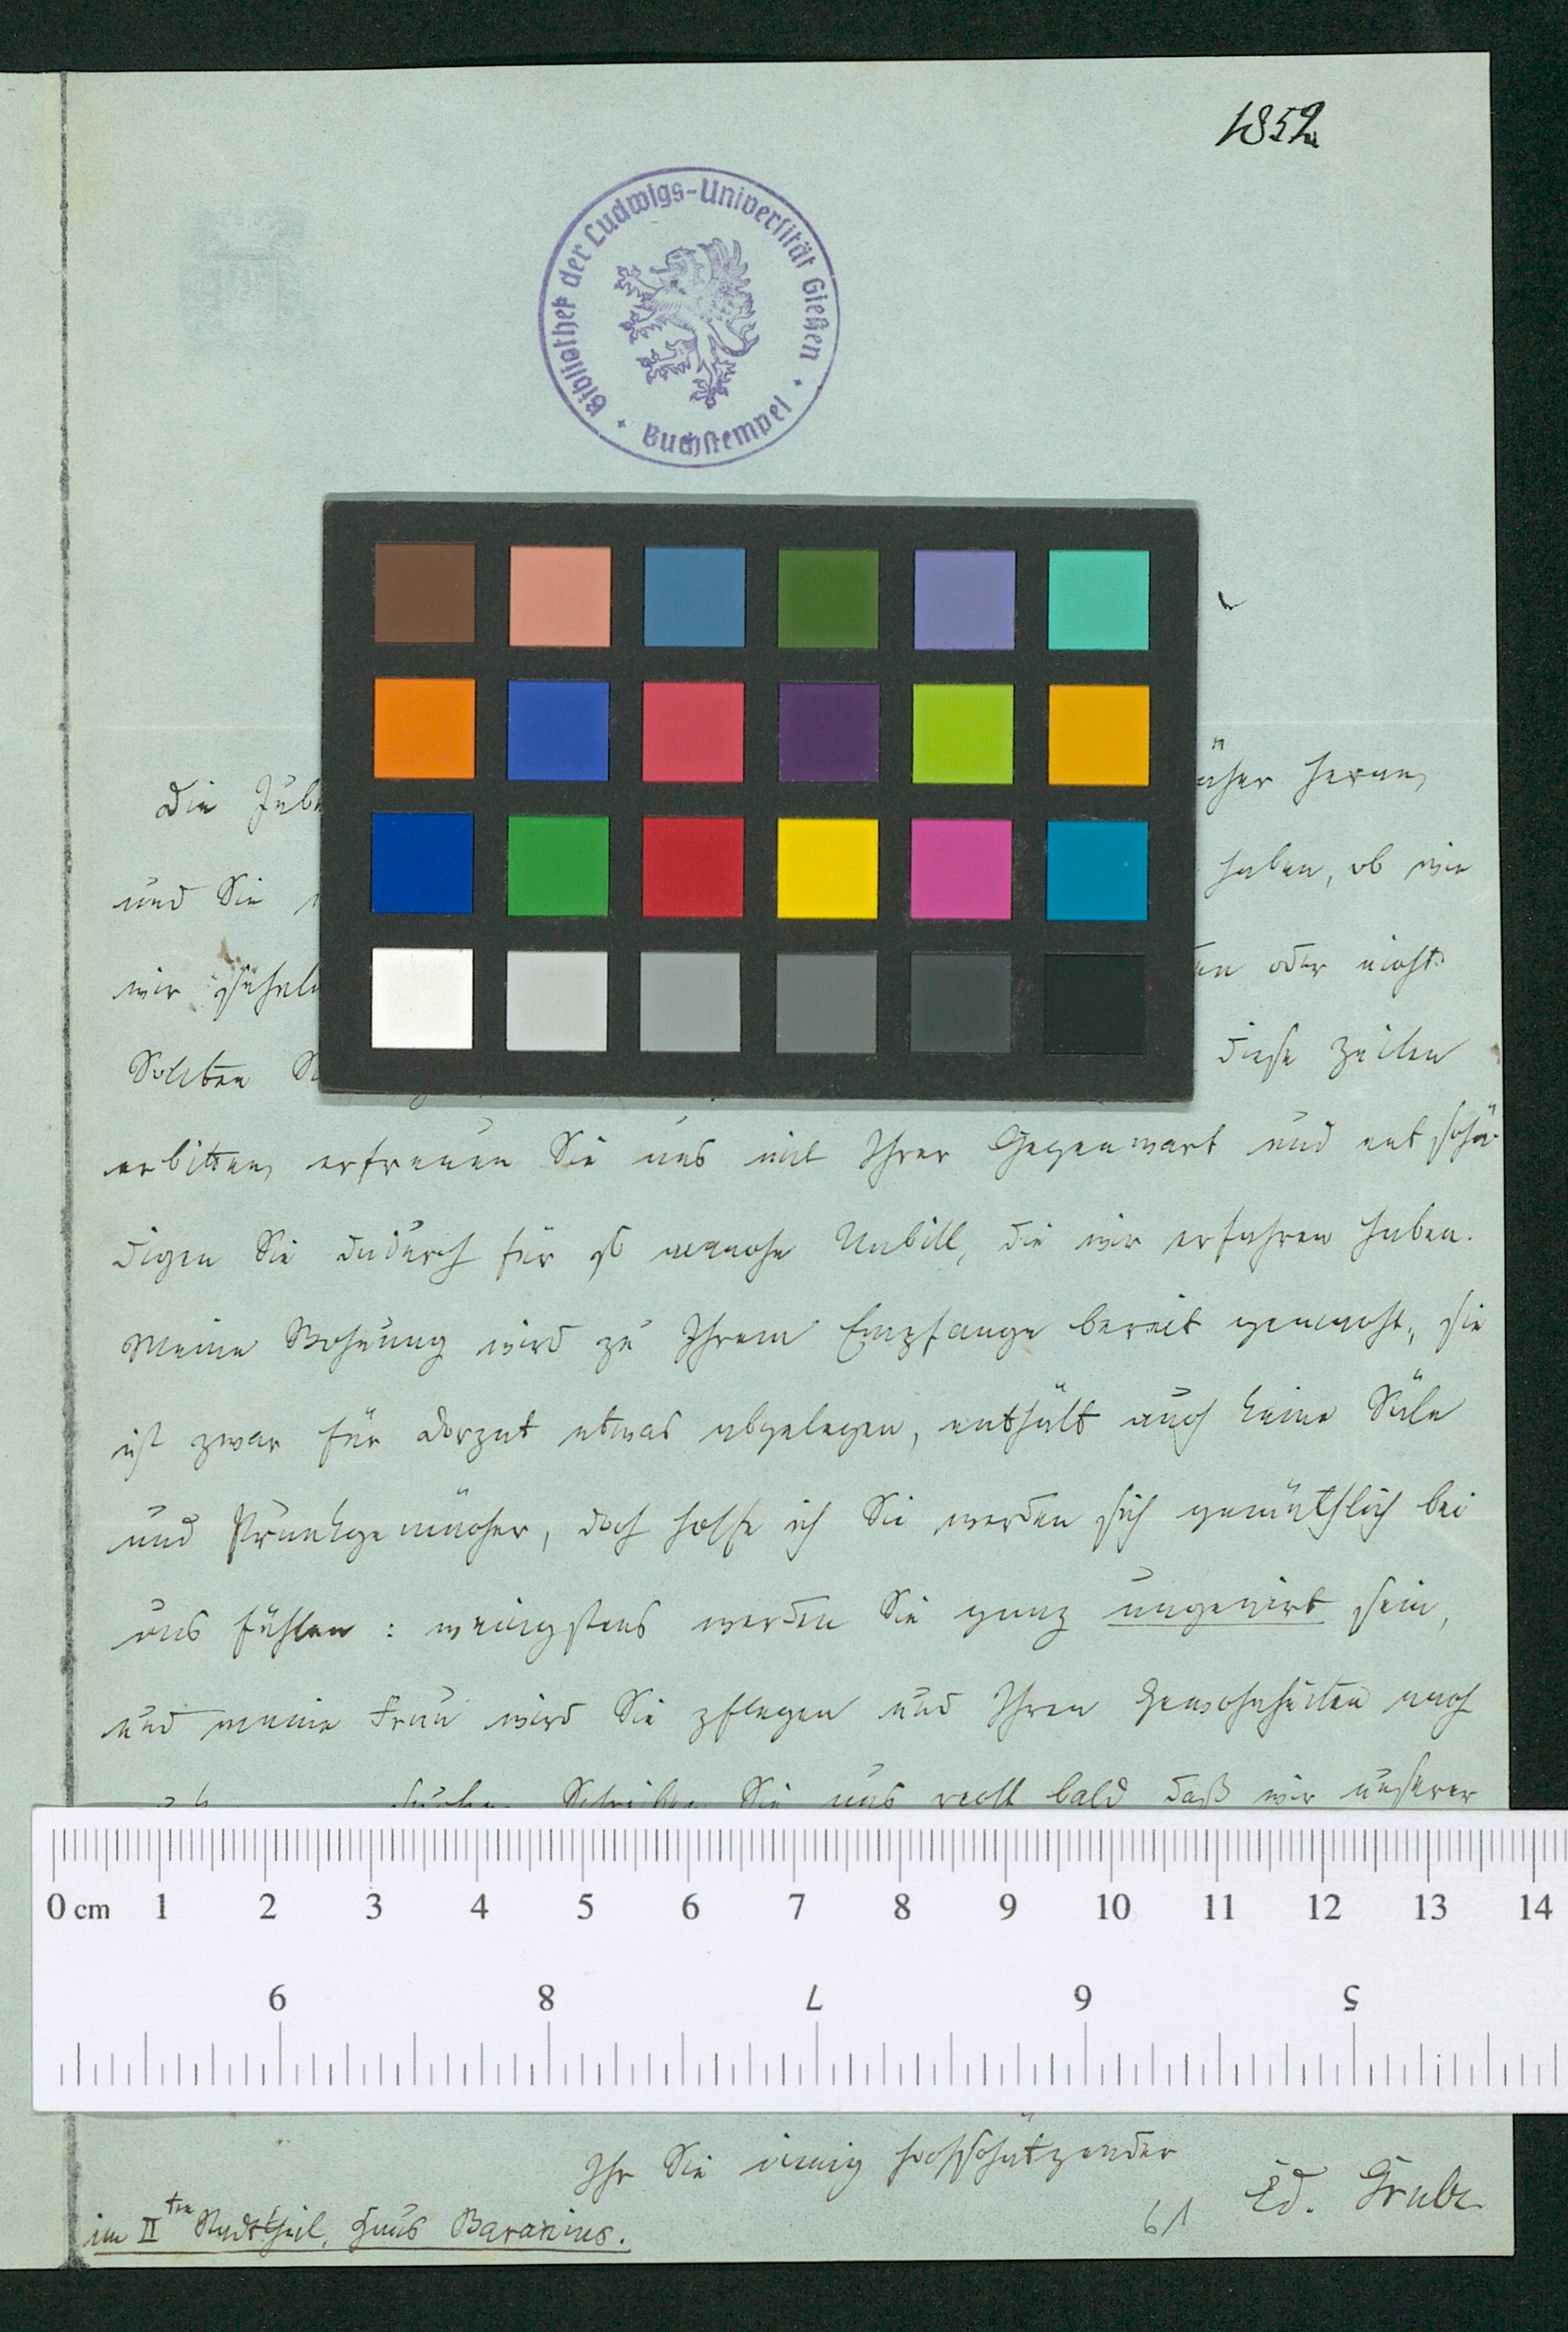 1852
Bibliothek der Ludwigs-Universität Gießen
Buchstempel
Die Jube näher heran,
und Sie haben, ob wie
wir sn oder nicht
Sollten diese Zeilen
erbitten, erfreuen Sie uns mit Ihrer Gegenwart und entschä-
digen Sie dadurch für so manche Unbill, die wir erfahren haben.
Meine Wohnung wird zu Ihrem Empfange bereit gemacht, sie
ist zwar für Dorpat etwas abgelegen, enthält auch keine Säle
und Prunkgemächer, doch hoffe ich Sie werden sich gemüthlich bei
uns fühlen: wenigstens werden Sie ganz ungenirt sein,
und meine Frau wird Sie pflegen und Ihren Gewohnheiten nach
suchen. Schreiben Sie uns recht bald daß wir unserer
0 cm 1 2 3 4 5 6 7 8 9 10 11 12 13 14
9 8 7 6 5
Ihr Sie innig hochschätzender
Ed. Grube
61
im II ten Stadttheil, Haus Baranius.